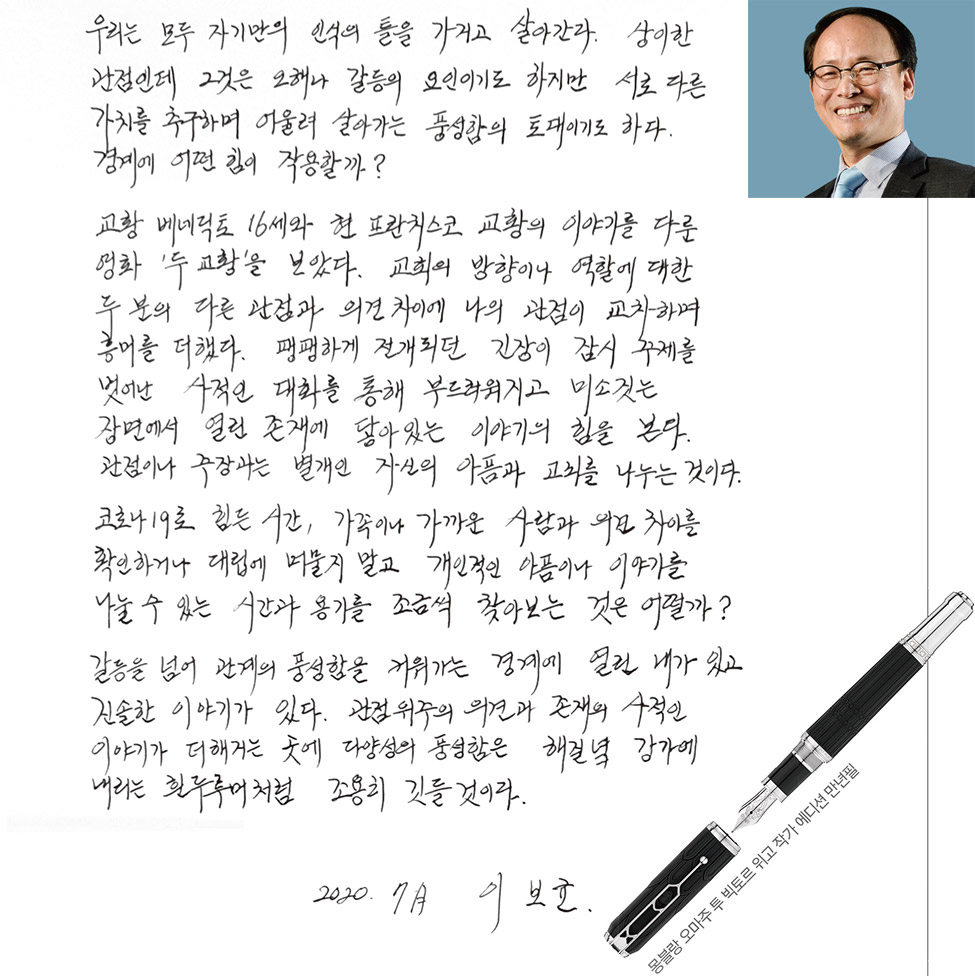 우리는 모두 자기만의 인식의 틀을 가지고 살아간다. 상이한
관점인데 그것은 오해나 갈등의 요인이기도 하지만 서로 다른
가치를 추구하며 어울려 살아가는 풍성함의 토대이기도 하다.
경계에 어떤 힘이 작용할까?
교황 베네딕토 16세와 현 프란치스코 교황의 이야기를 다룬
영화 '두 교황'을 보았다. 교회의 방향이나 역할에 대한
두 분의 다른 관점과 의견 차이에 나의 관점이 교차하며
흥미를 더했다. 팽팽하게 전개되던 긴장이 잠시 주제를
벗어난 사적인 대화를 통해 부드러워지고 미소짓는
장면에서 열린 존재에 닿아있는 이야기의 힘을 본다.
관점이나 주장과는 별개인 자신의 아픔과 고뇌를 나누는 것이다.
코로나19로 힘든 시간, 가족이나 가까운 사람과 의견 차이를
확인하거나 대립에 머물지 말고 개인적인 아픔이나 이야기를
나눌 수 있는 시간과 용기를 조금씩 찾아보는 것은 어떨까?
갈등을 넘어 관계의 풍성함을 키워가는 경계에 열린 내가 있고
진솔한 이야기가 있다. 관점 위주의 의견과 존재의 사적인
이야기가 더해지는 곳에 다양성의 풍성함은 해질녘 강가에
내리는 흰두루미처럼 조용히 깃들 것이다.
2020. 7月 이 보
몽블랑 오마주 투 빅토르 위고 작가 에디션 만년필